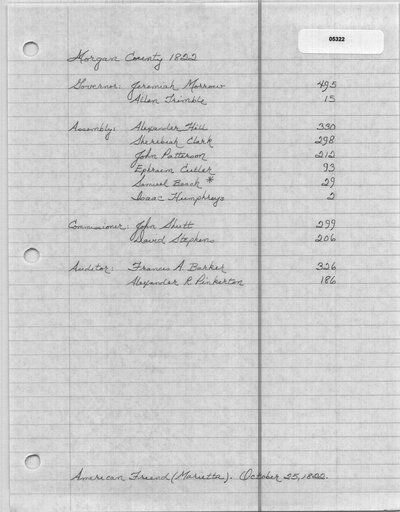 05322
Morgan County 1822
Governor: Jeremiah Morrow 495
Allen Trimble 15
Assembly: Alexander Hill 330
Sherebiah Clark 298
John Patterson 212
Ephraim Cutler 93
Samuel Beach * 29
Isaac Humphreys 2
Commissioner: John Shutt 299
David Stephens 206
Auditor: Francis A. Barker 326
Alexander R. Pinkerton 186
American Friend (Marietta). October 25, 1822.